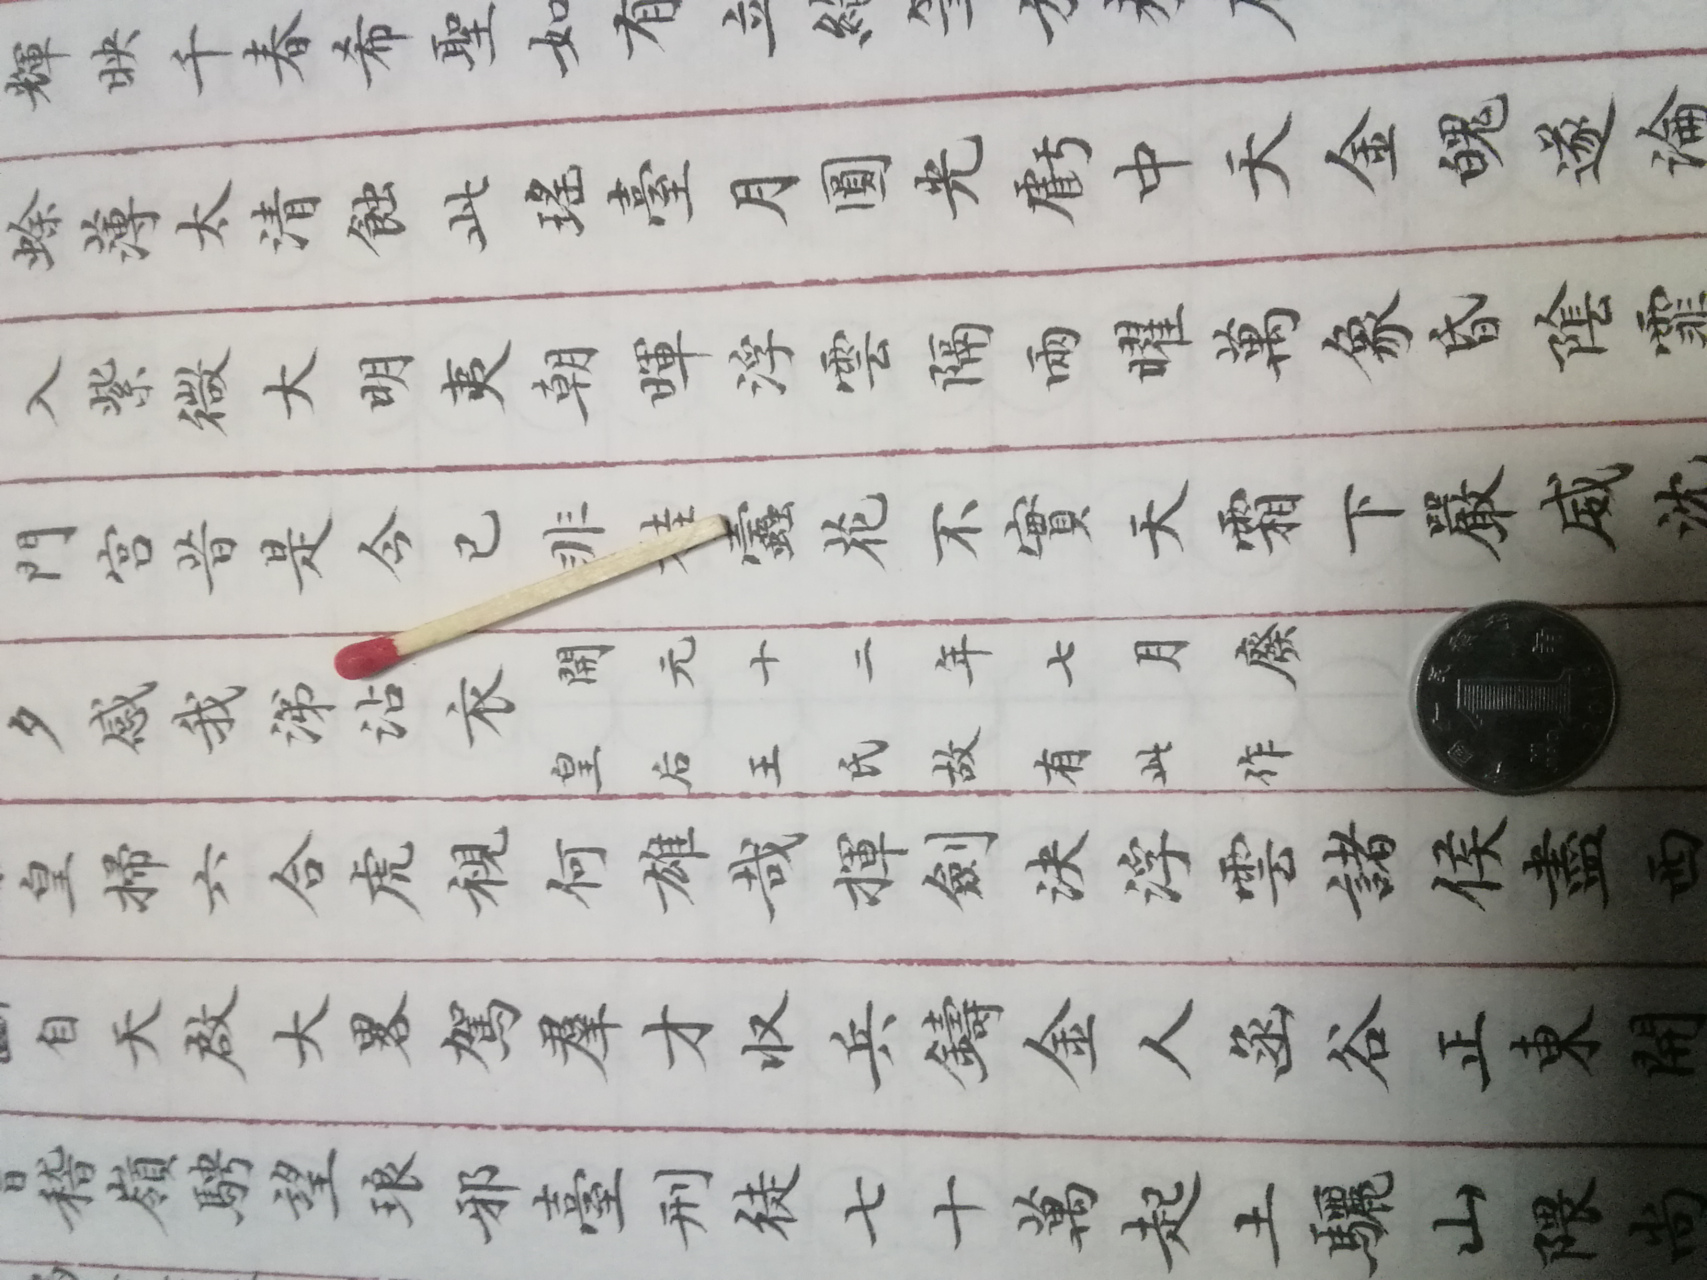 輝映千春希聖如有立
蜍薄太清蝕此瑤臺月圓光虧中天金魄遂淪
入紫微大明夷朝暉浮雲隔兩曜萬象昏陰霏
門宮昔是今已非桂蠹花不實天霜下嚴威沈
夕感我涕沾衣
開元十二年七月廢
皇后王氏故有此作
皇掃六合虎視何雄哉揮劍決浮雲諸侯盡西
自天啟大畧駕羣才收兵鑄金人函谷正東開
稽嶺騁望琅邪臺刑徒七十萬起土驪山隈尚
1